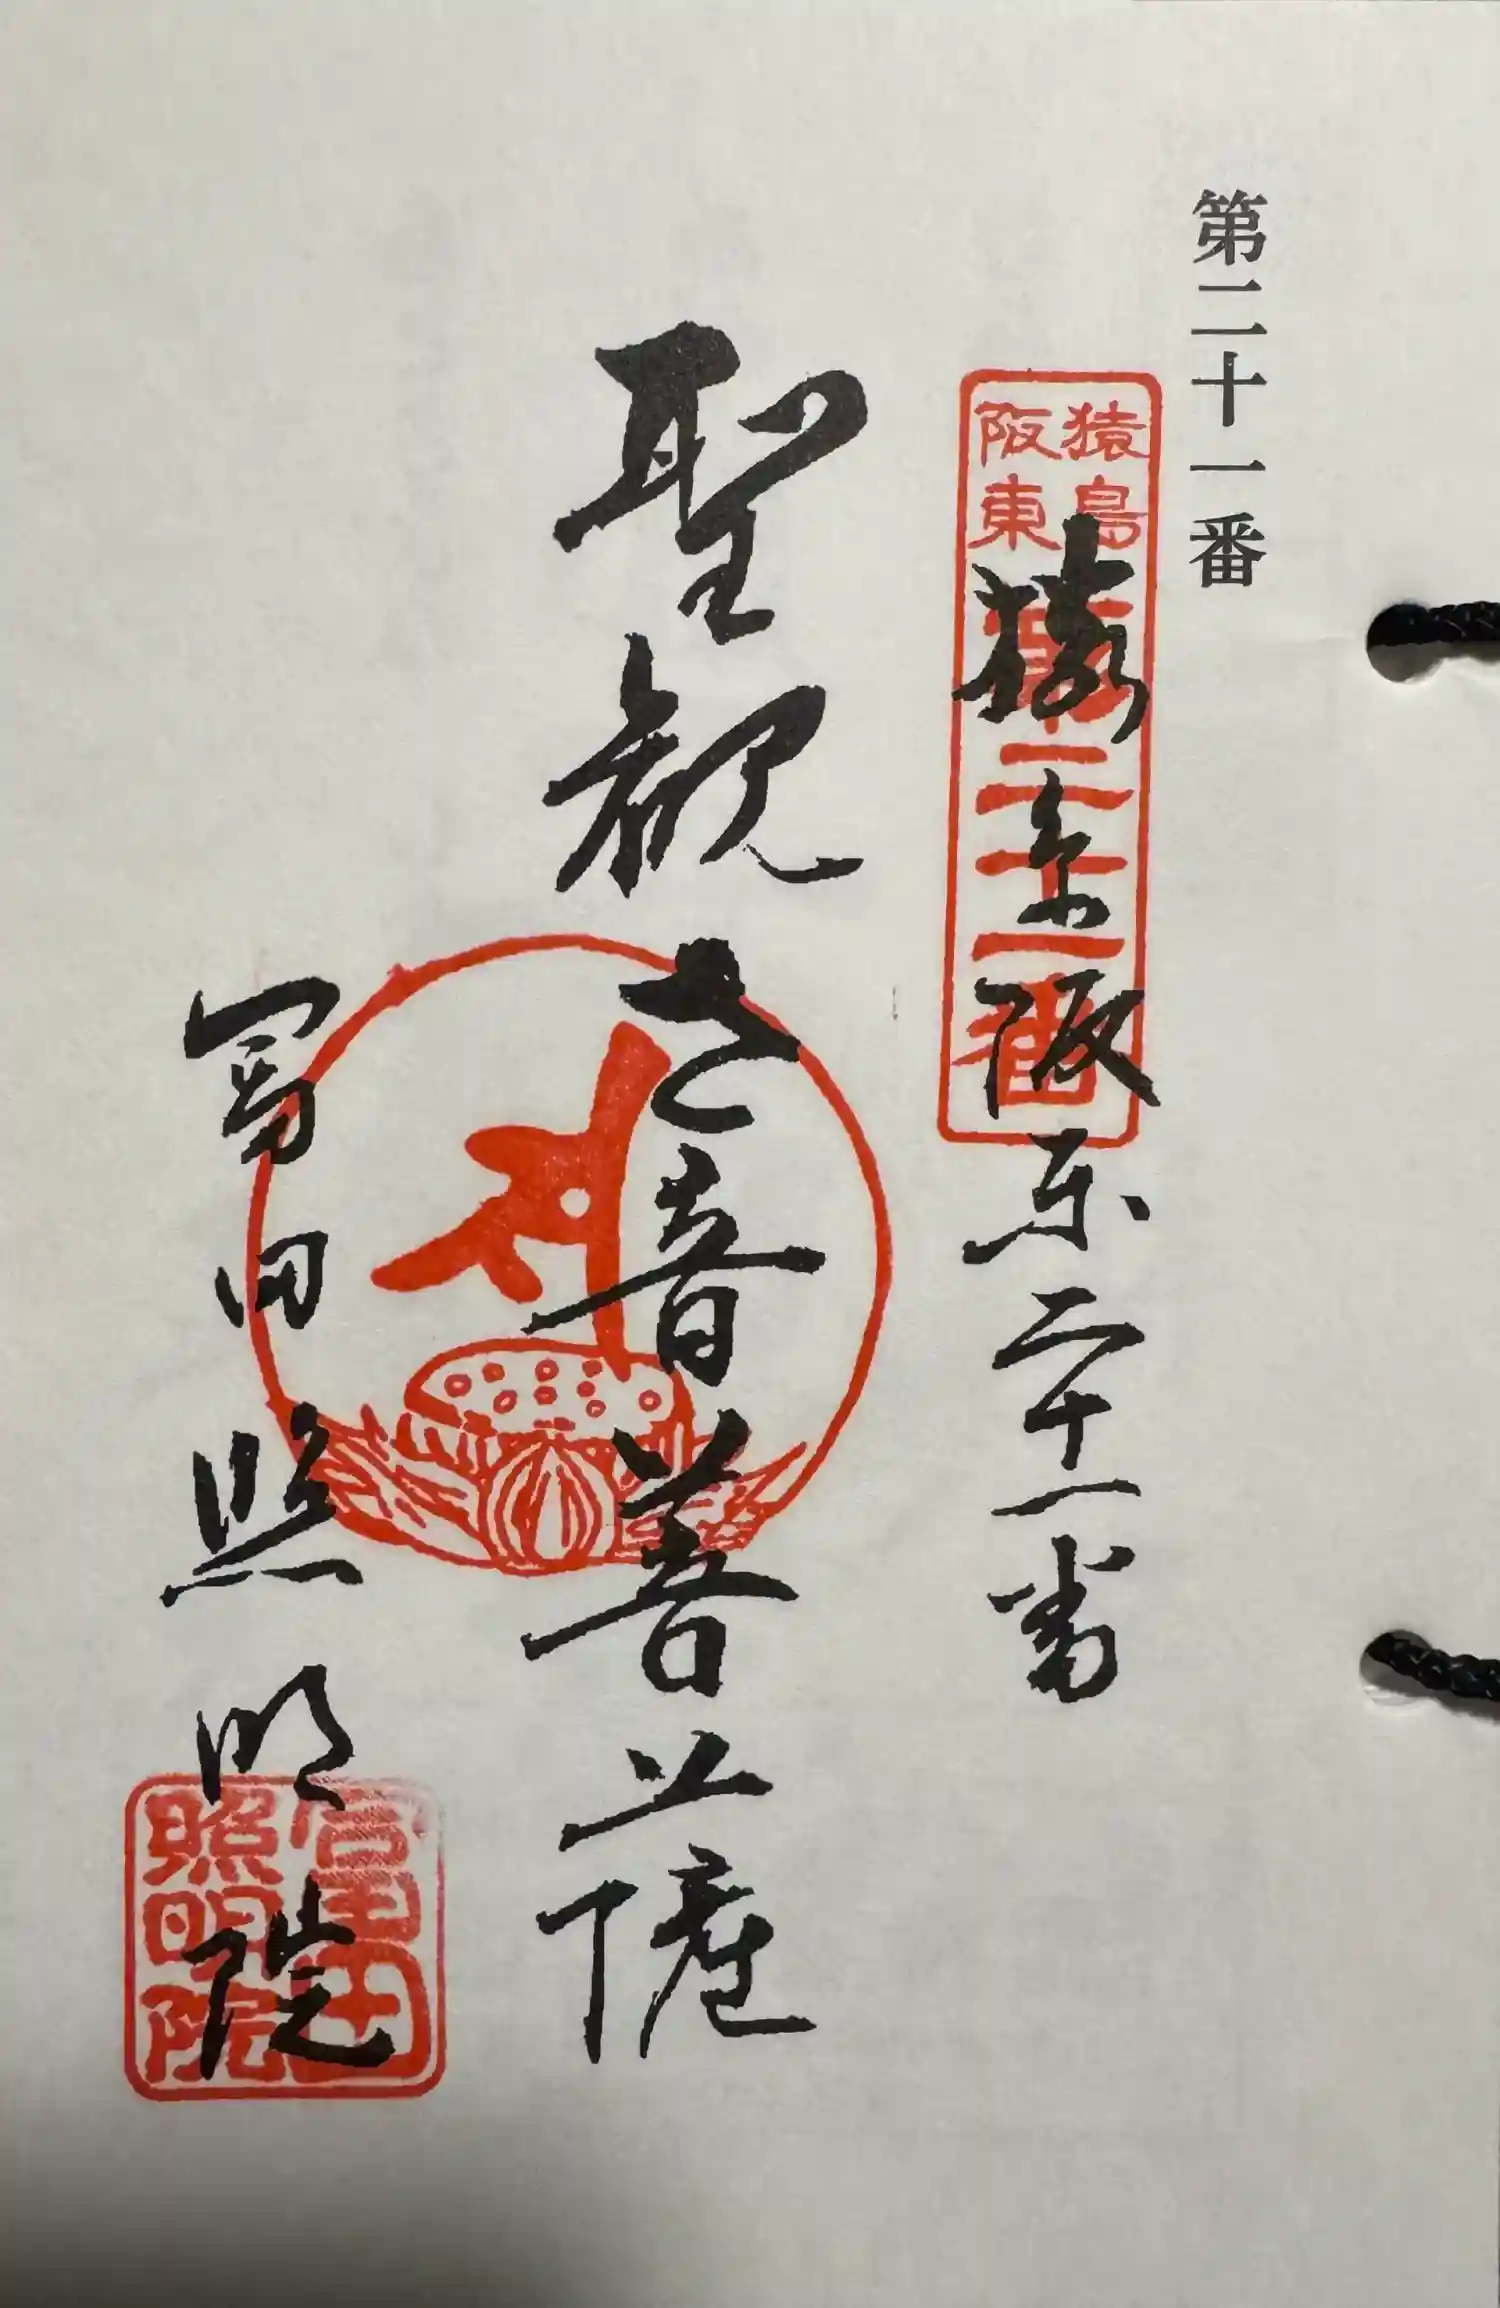 第二十一番
猿島阪東
第二十一番
猿島阪東二十一番
聖観世音菩薩
冨田照明院
富田照明院